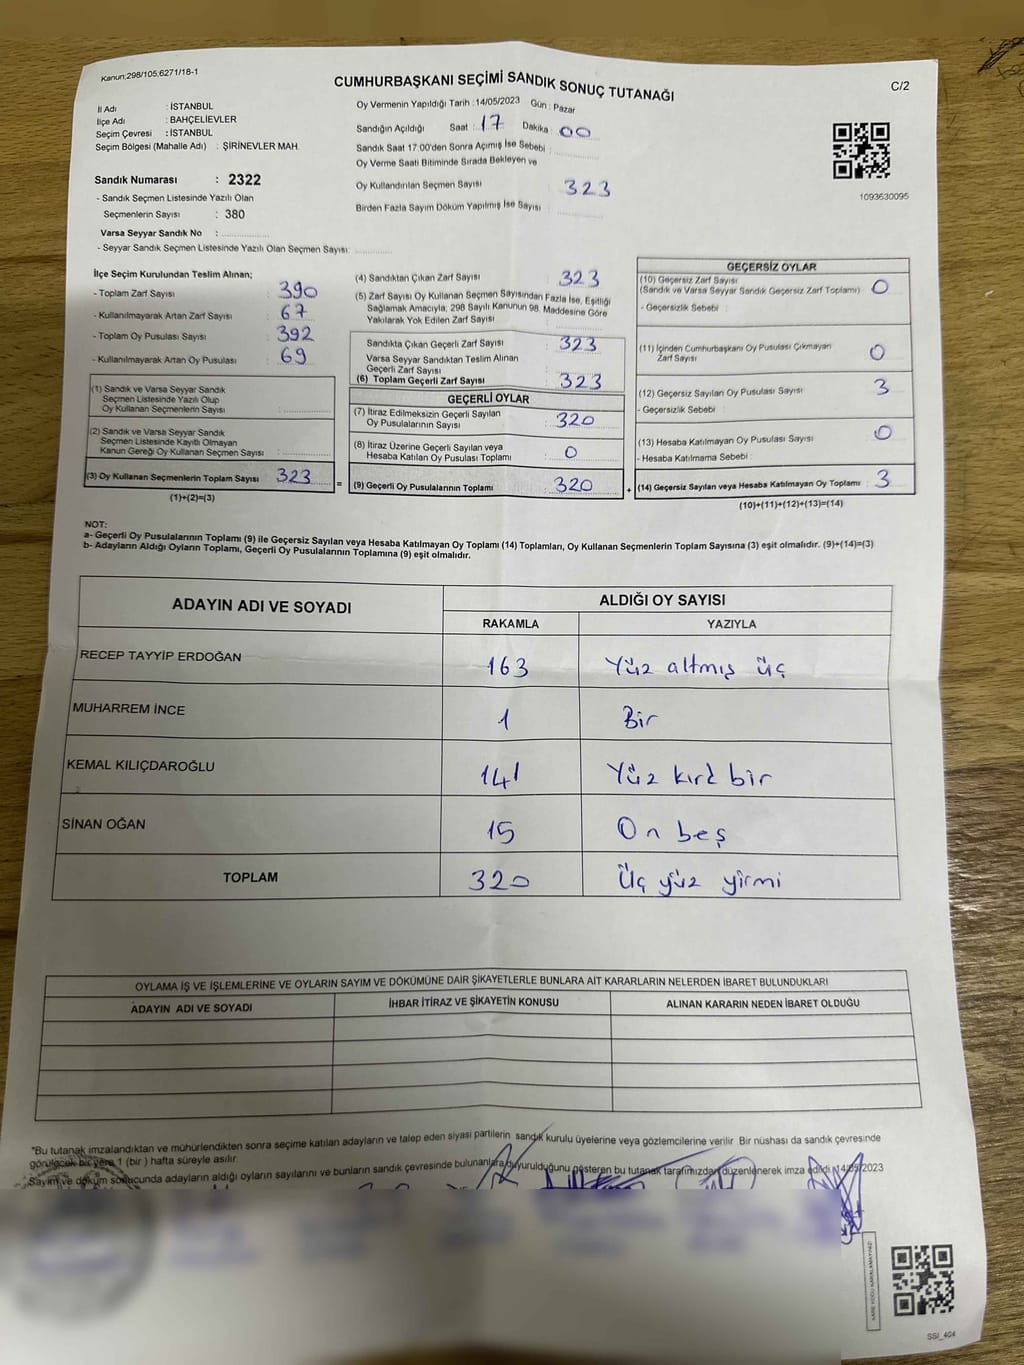 Kanun;298/105,6271/18-1
CUMHURBAŞKANI SEÇİMİ SANDIK SONUÇ TUTANAĞI
C/2
İl Adı : İSTANBUL
İlçe Adı : BAHÇELİEVLER
Seçim Çevresi : İSTANBUL
Seçim Bölgesi (Mahalle Adı) : ŞİRİNEVLER MAH.
Oy Vermenin Yapıldığı Tarih : 14/05/2023 Gün : Pazar
Sandığın Açıldığı Saat : 17 Dakika : 00
Sandık Saat 17:00'den Sonra Açımış İse Sebebi :
Oy Verme Saati Bitiminde Sırada Bekleyen ve
Oy Kullandırılan Seçmen Sayısı : 323
Birden Fazla Sayım Döküm Yapılmış İse Sayısı :
1093630095
Sandık Numarası : 2322
- Sandık Seçmen Listesinde Yazılı Olan
Seçmenlerin Sayısı : 380
Varsa Seyyar Sandık No :
- Seyyar Sandık Seçmen Listesinde Yazılı Olan Seçmen Sayısı:
İlçe Seçim Kurulundan Teslim Alınan;
- Toplam Zarf Sayısı : 390
- Kullanılmayarak Artan Zarf Sayısı : 67
- Toplam Oy Pusulası Sayısı : 392
- Kullanılmayarak Artan Oy Pusulası : 69
(1) Sandık ve Varsa Seyyar Sandık
Seçmen Listesinde Yazılı Olup
Oy Kullanan Seçmenlerin Sayısı :
(2) Sandık ve Varsa Seyyar Sandık
Seçmen Listesinde Kayıtlı Olmayan
Kanun Gereği Oy Kullanan Seçmen Sayısı :
(3) Oy Kullanan Seçmenlerin Toplam Sayısı : 323
(1)+(2)=(3)
(4) Sandıktan Çıkan Zarf Sayısı : 323
(5) Zarf Sayısı Oy Kullanan Seçmen Sayısından Fazla İse, Eşitliği
Sağlamak Amacıyla, 298 Sayılı Kanunun 98. Maddesine Göre
Yakılarak Yok Edilen Zarf Sayısı :
Sandıkta Çıkan Geçerli Zarf Sayısı : 323
Varsa Seyyar Sandıktan Teslim Alınan
Geçerli Zarf Sayısı :
(6) Toplam Geçerli Zarf Sayısı : 323
GEÇERLİ OYLAR
(7) İtiraz Edilmeksizin Geçerli Sayılan
Oy Pusulalarının Sayısı : 320
(8) İtiraz Üzerine Geçerli Sayılan veya
Hesaba Katılan Oy Pusulası Toplamı : 0
= (9) Geçerli Oy Pusulalarının Toplamı : 320 +
GEÇERSİZ OYLAR
(10) Geçersiz Zarf Sayısı : 0
(Sandık ve Varsa Seyyar Sandık Geçersiz Zarf Toplamı)
- Geçersizlik Sebebi :
(11) İçinden Cumhurbaşkanı Oy Pusulası Çıkmayan
Zarf Sayısı : 0
(12) Geçersiz Sayılan Oy Pusulası Sayısı : 3
- Geçersizlik Sebebi :
(13) Hesaba Katılmayan Oy Pusulası Sayısı : 0
- Hesaba Katılmama Sebebi :
(14) Geçersiz Sayılan veya Hesaba Katılmayan Oy Toplamı : 3
(10)+(11)+(12)+(13)=(14)
NOT:
a- Geçerli Oy Pusulalarının Toplamı (9) ile Geçersiz Sayılan veya Hesaba Katılmayan Oy Toplamı (14) Toplamları, Oy Kullanan Seçmenlerin Toplam Sayısına (3) eşit olmalıdır. (9)+(14)=(3)
b- Adayların Aldığı Oyların Toplamı, Geçerli Oy Pusulalarının Toplamına (9) eşit olmalıdır.
ADAYIN ADI VE SOYADI ALDIĞI OY SAYISI
RAKAMLA YAZIYLA
RECEP TAYYİP ERDOĞAN 163 Yüz altmış üç
MUHARREM İNCE 1 Bir
KEMAL KILIÇDAROĞLU 141 Yüz kırk bir
SİNAN OĞAN 15 On beş
TOPLAM 320 Üç yüz yirmi
OYLAMA İŞ VE İŞLEMLERİNE VE OYLARIN SAYIM VE DÖKÜMÜNE DAİR ŞİKAYETLERLE BUNLARA AİT KARARLARIN NELERDEN İBARET BULUNDUKLARI
ADAYIN ADI VE SOYADI İHBAR İTİRAZ VE ŞİKAYETİN KONUSU ALINAN KARARIN NEDEN İBARET OLDUĞU
"Bu tutanak imzalandıktan ve mühürlendikten sonra seçime katılan adayların ve talep eden siyasi partilerin sandık kurulu üyelerine veya gözlemcilerine verilir Bir nüshası da sandık çevresinde
görülecek bir yere 1 (bir ) hafta süreyle asılır.
Sayım ve döküm sonucunda adayların aldığı oyların sayılarını ve bunların sandık çevresinde bulunanlara duyurulduğunu gösteren bu tutanak tarafımızdan düzenlenerek imza edildi. 14/05/2023
SSI_404